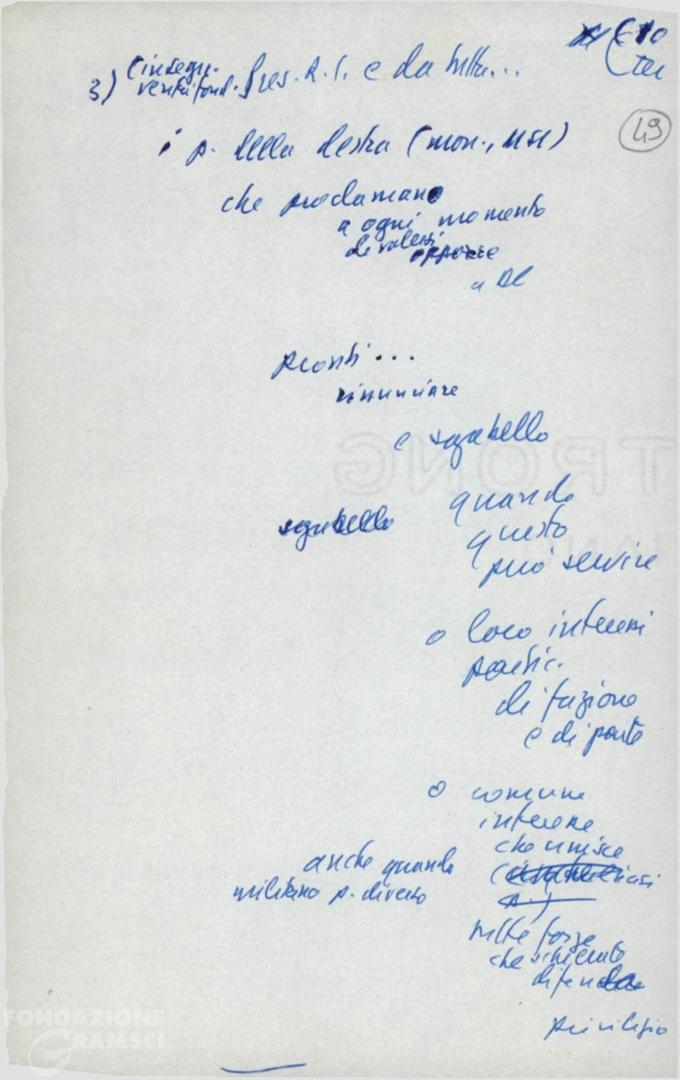 49
3) l'insegn.
verità fond. Pres. R. S. e da tutta...
i p. della destra (mon., MSI)
che proclamano
a ogni momento
di volersi
opporre
a DC
pronti...
rinunciare
e sgabello
sgabello
quando
questo
può servire
o loro interessi
partic.
di fazione
e di parte
o comune
interesse
che unisce
anche quando
militano p. diverso
tutte forze
che schierate
difendere
privilegio
FONDAZIONE
GRAMSCI